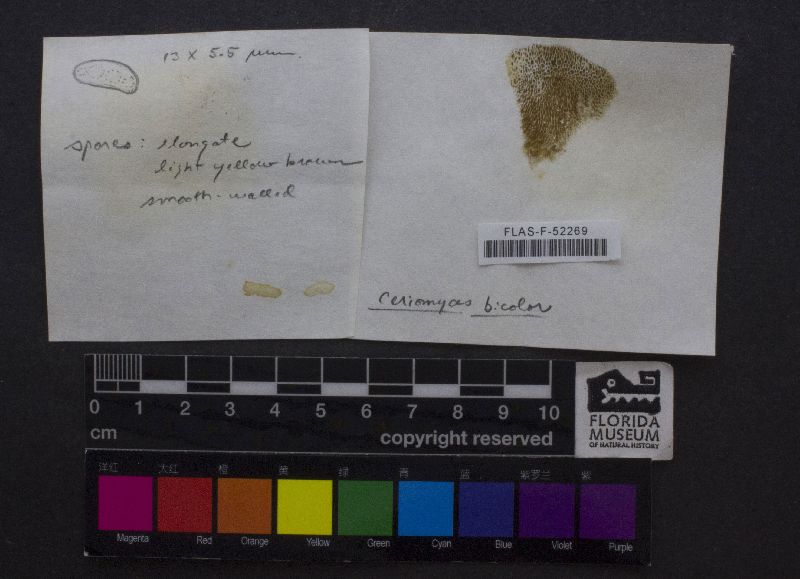 13 x 5.5 µm.
spores: elongate
light yellow brown
smooth-walled
FLAS-F-52269
Ceriomyces bicolor
0 1 2 3 4 5 6 7 8 9 10
cm
copyright reserved
FLORIDA
MUSEUM
OF NATURAL HISTORY
洋红 大红 橙 黄 绿 青 蓝 紫罗兰 紫
Magenta Red Orange Yellow Green Cyan Blue Violet Purple